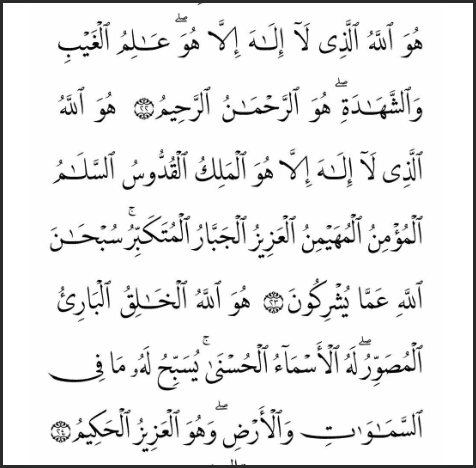 هُوَ ٱللَّهُ ٱلَّذِى لَآ إِلَٰهَ إِلَّا هُوَۖ عَٰلِمُ ٱلْغَيْبِ
وَٱلشَّهَٰدَةِۖ هُوَ ٱلرَّحْمَٰنُ ٱلرَّحِيمُ ٢٢ هُوَ ٱللَّهُ
ٱلَّذِى لَآ إِلَٰهَ إِلَّا هُوَ ٱلْمَلِكُ ٱلْقُدُّوسُ ٱلسَّلَٰمُ
ٱلْمُؤْمِنُ ٱلْمُهَيْمِنُ ٱلْعَزِيزُ ٱلْجَبَّارُ ٱلْمُتَكَبِّرُۚ سُبْحَٰنَ
ٱللَّهِ عَمَّا يُشْرِكُونَ ٢٣ هُوَ ٱللَّهُ ٱلْخَٰلِقُ ٱلْبَارِئُ
ٱلْمُصَوِّرُۖ لَهُ ٱلْأَسْمَآءُ ٱلْحُسْنَىٰۚ يُسَبِّحُ لَهُۥ مَا فِى
ٱلسَّمَٰوَٰتِ وَٱلْأَرْضِۖ وَهُوَ ٱلْعَزِيزُ ٱلْحَكِيمُ ٢٤